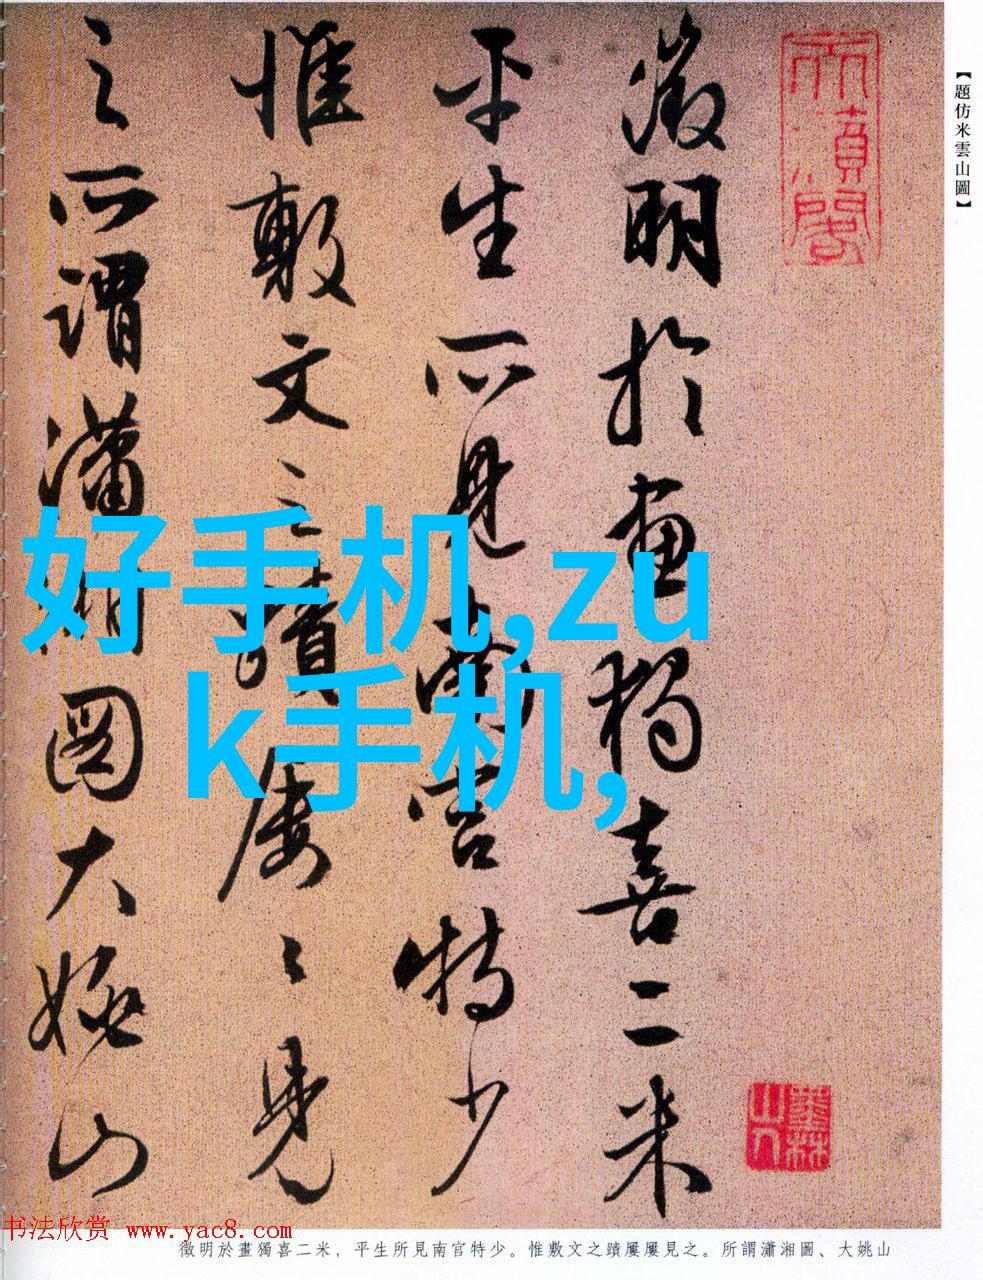 【題仿米雲山圖】
徵明於畫獨喜二米
平生所見南宮特少
惟敷文之蹟屢〻見
之所謂瀟湘圖大姚山
好手机,zu
k手机,
书法欣赏 www.yac8.com
徵明於畫獨喜二米，平生所見南宮特少。惟敷文之蹟屢屢見之。所謂瀟湘圖、大姚山